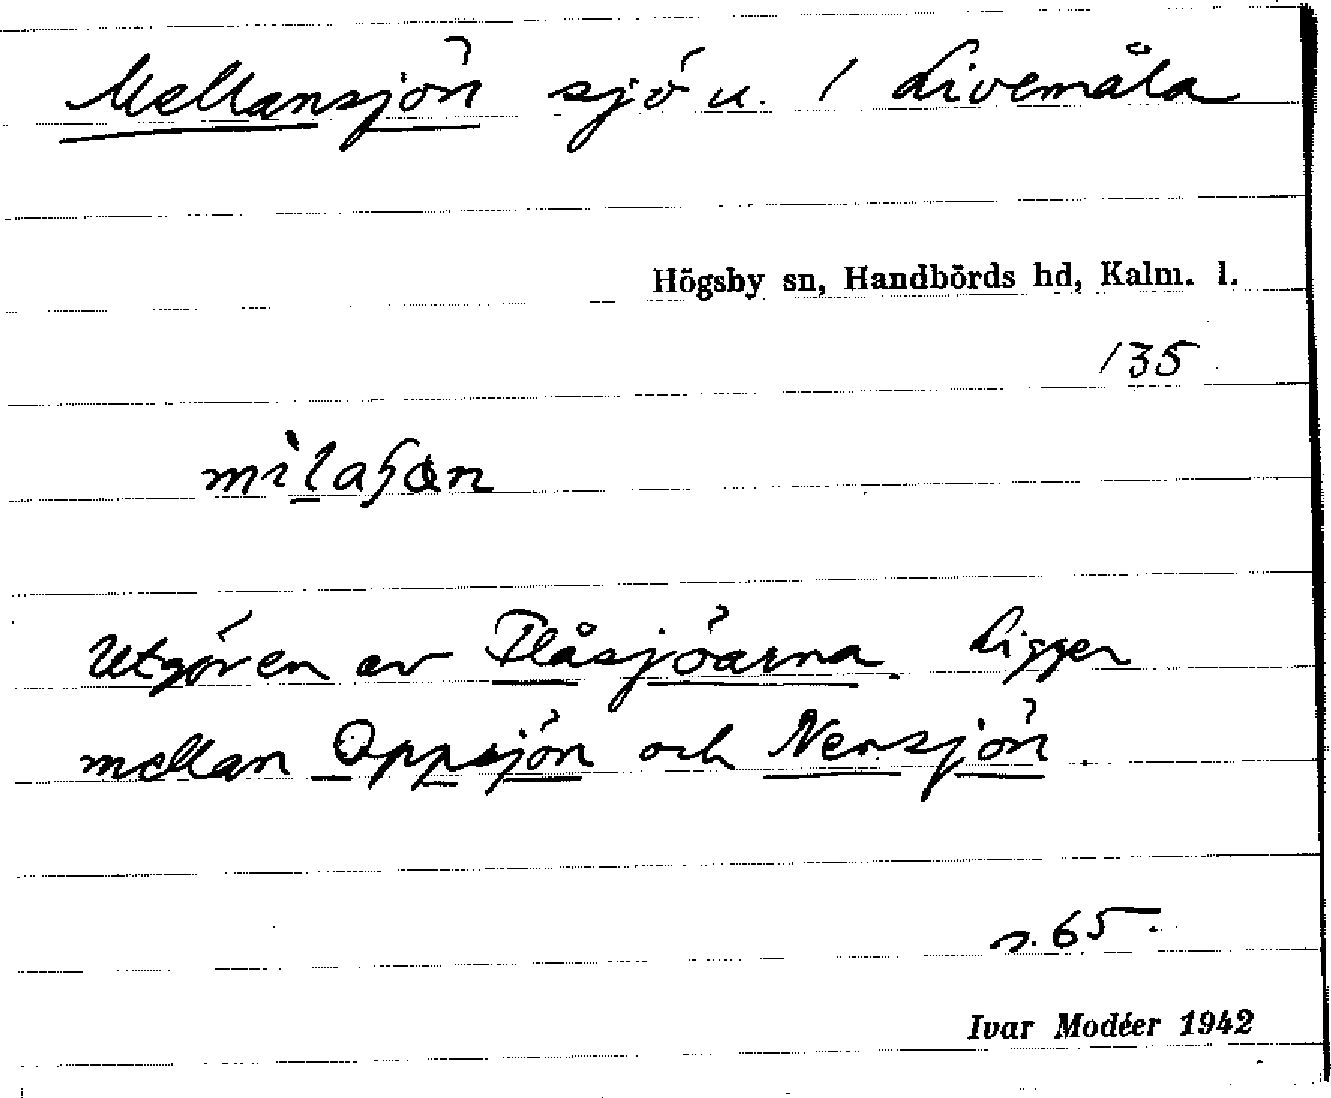 Mellansjön sjö u. / Livemåla
Högsby sn, Handbörds hd, Kalm. l.
135
Utgör en av Flåsjöarna. Ligger
mellan Oppsjön och Nersjön.
s. 65.
Ivar Modéer 1942